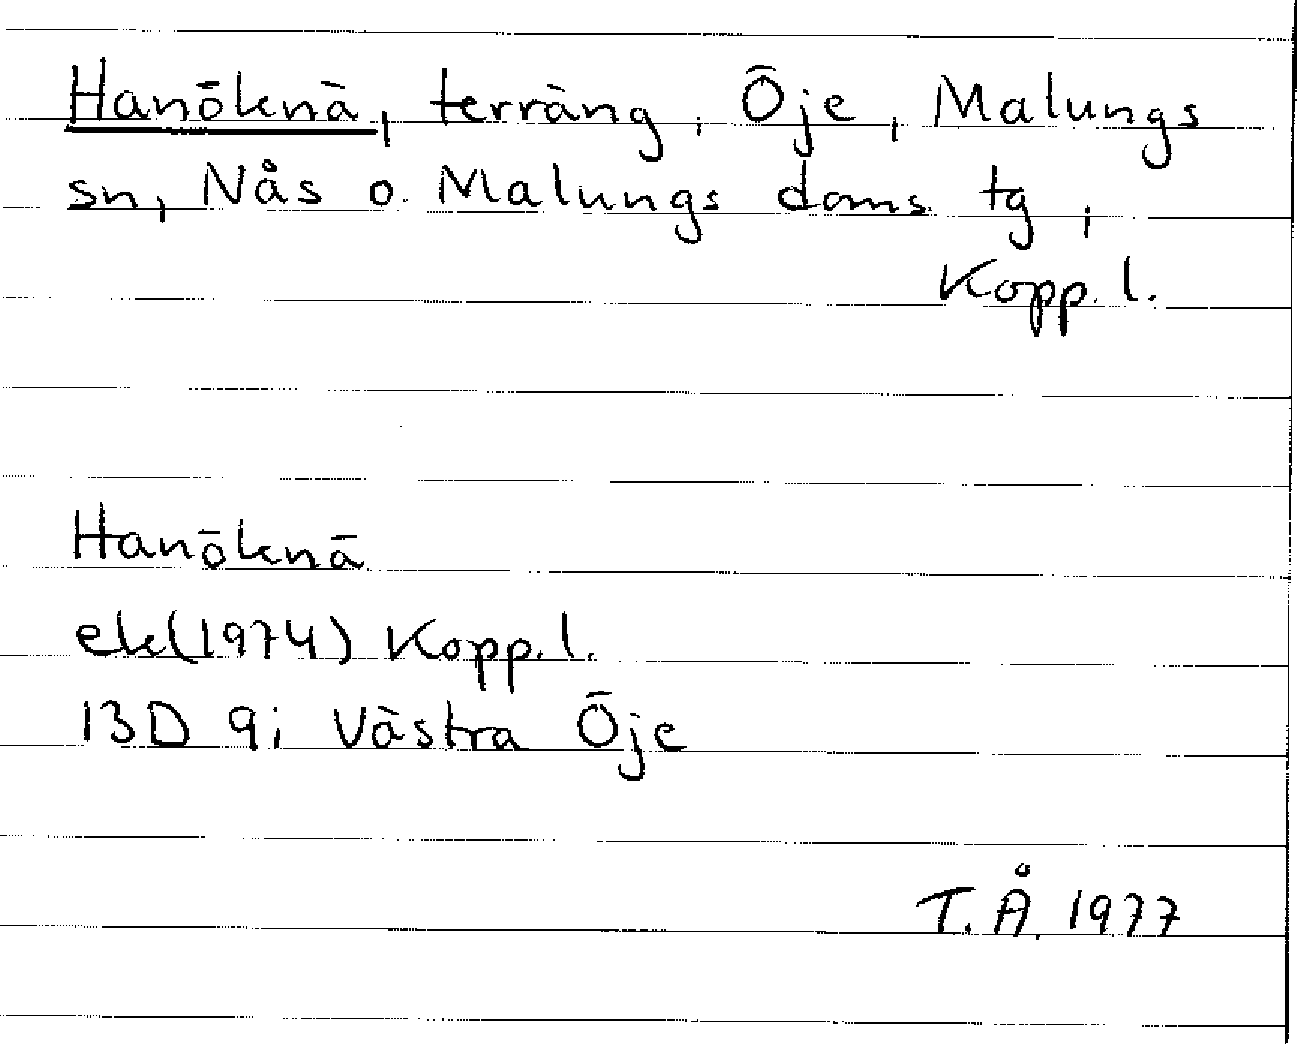 Hanöknä, terräng, Öje, Malungs
sn, Nås o. Malungs doms. tg,
Kopp. l.
Hanöknä
ek(1974) Kopp. l.
13D 9i Västra Öje
T. Å. 1977